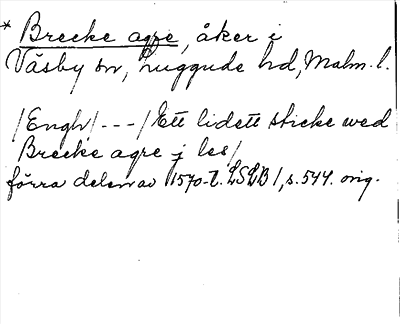 * Brecke agre, åker i
Väsby sn, Luggude hd, Malm. l.
/Engh/ - - - / Ett lidett sticke wed
Brecke agre j les /
förra delen av 1570-t. LSLB 1, s. 544. orig.